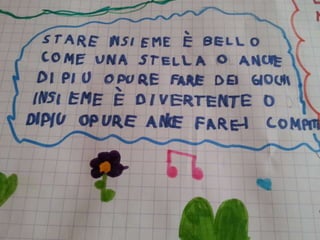 STARE INSIEME È BELLO
COME UNA STELLA O ANCHE
DI PIU OPURE FARE DEI GIOCHI
INSIEME È DIVERTENTE O
DIPIU OPURE ANKE FARE I COMPITI